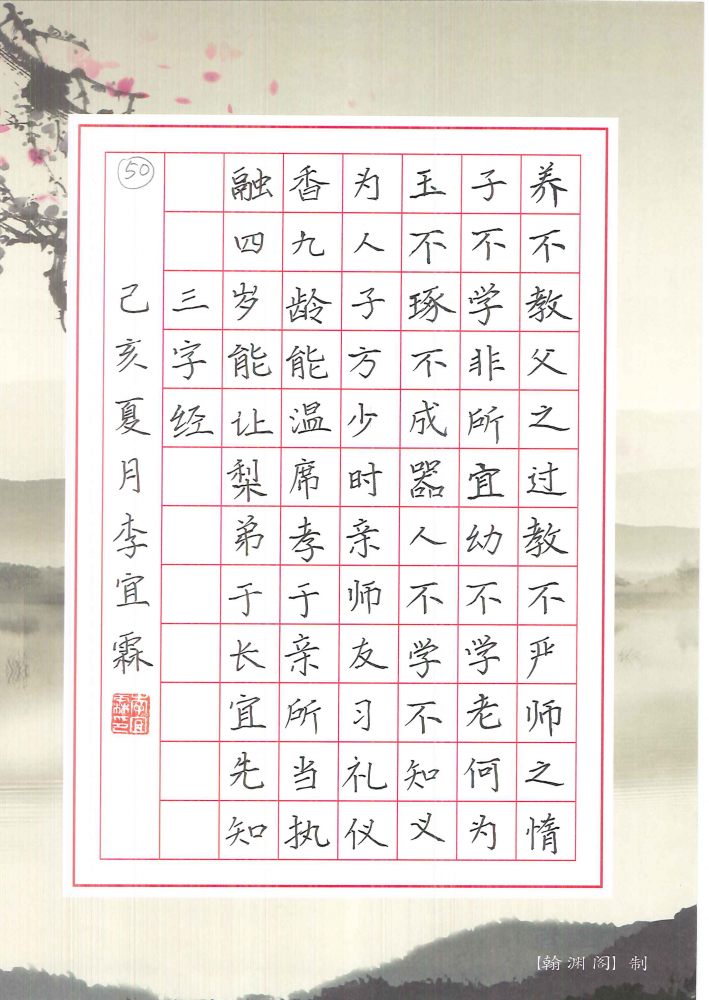 养不教父之过教不严师之惰
子不学非所宜幼不学老何为
玉不琢不成器人不学不知义
为人子方少时亲师友习礼仪
香九龄能温席孝于亲所当执
融四岁能让梨弟于长宜先知
三字经
50
己亥夏月李宜霖
李宜霖印
【翰渊阁】制